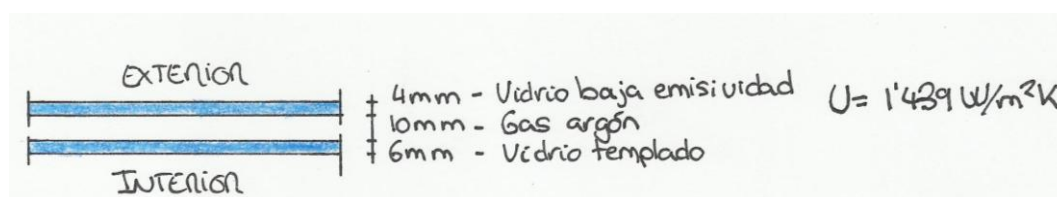 EXTERIOR
4mm - Vidrio baja emisividad
10mm - Gas argón
6mm - Vidrio templado
U= 1'439 W/m²K
INTERIOR